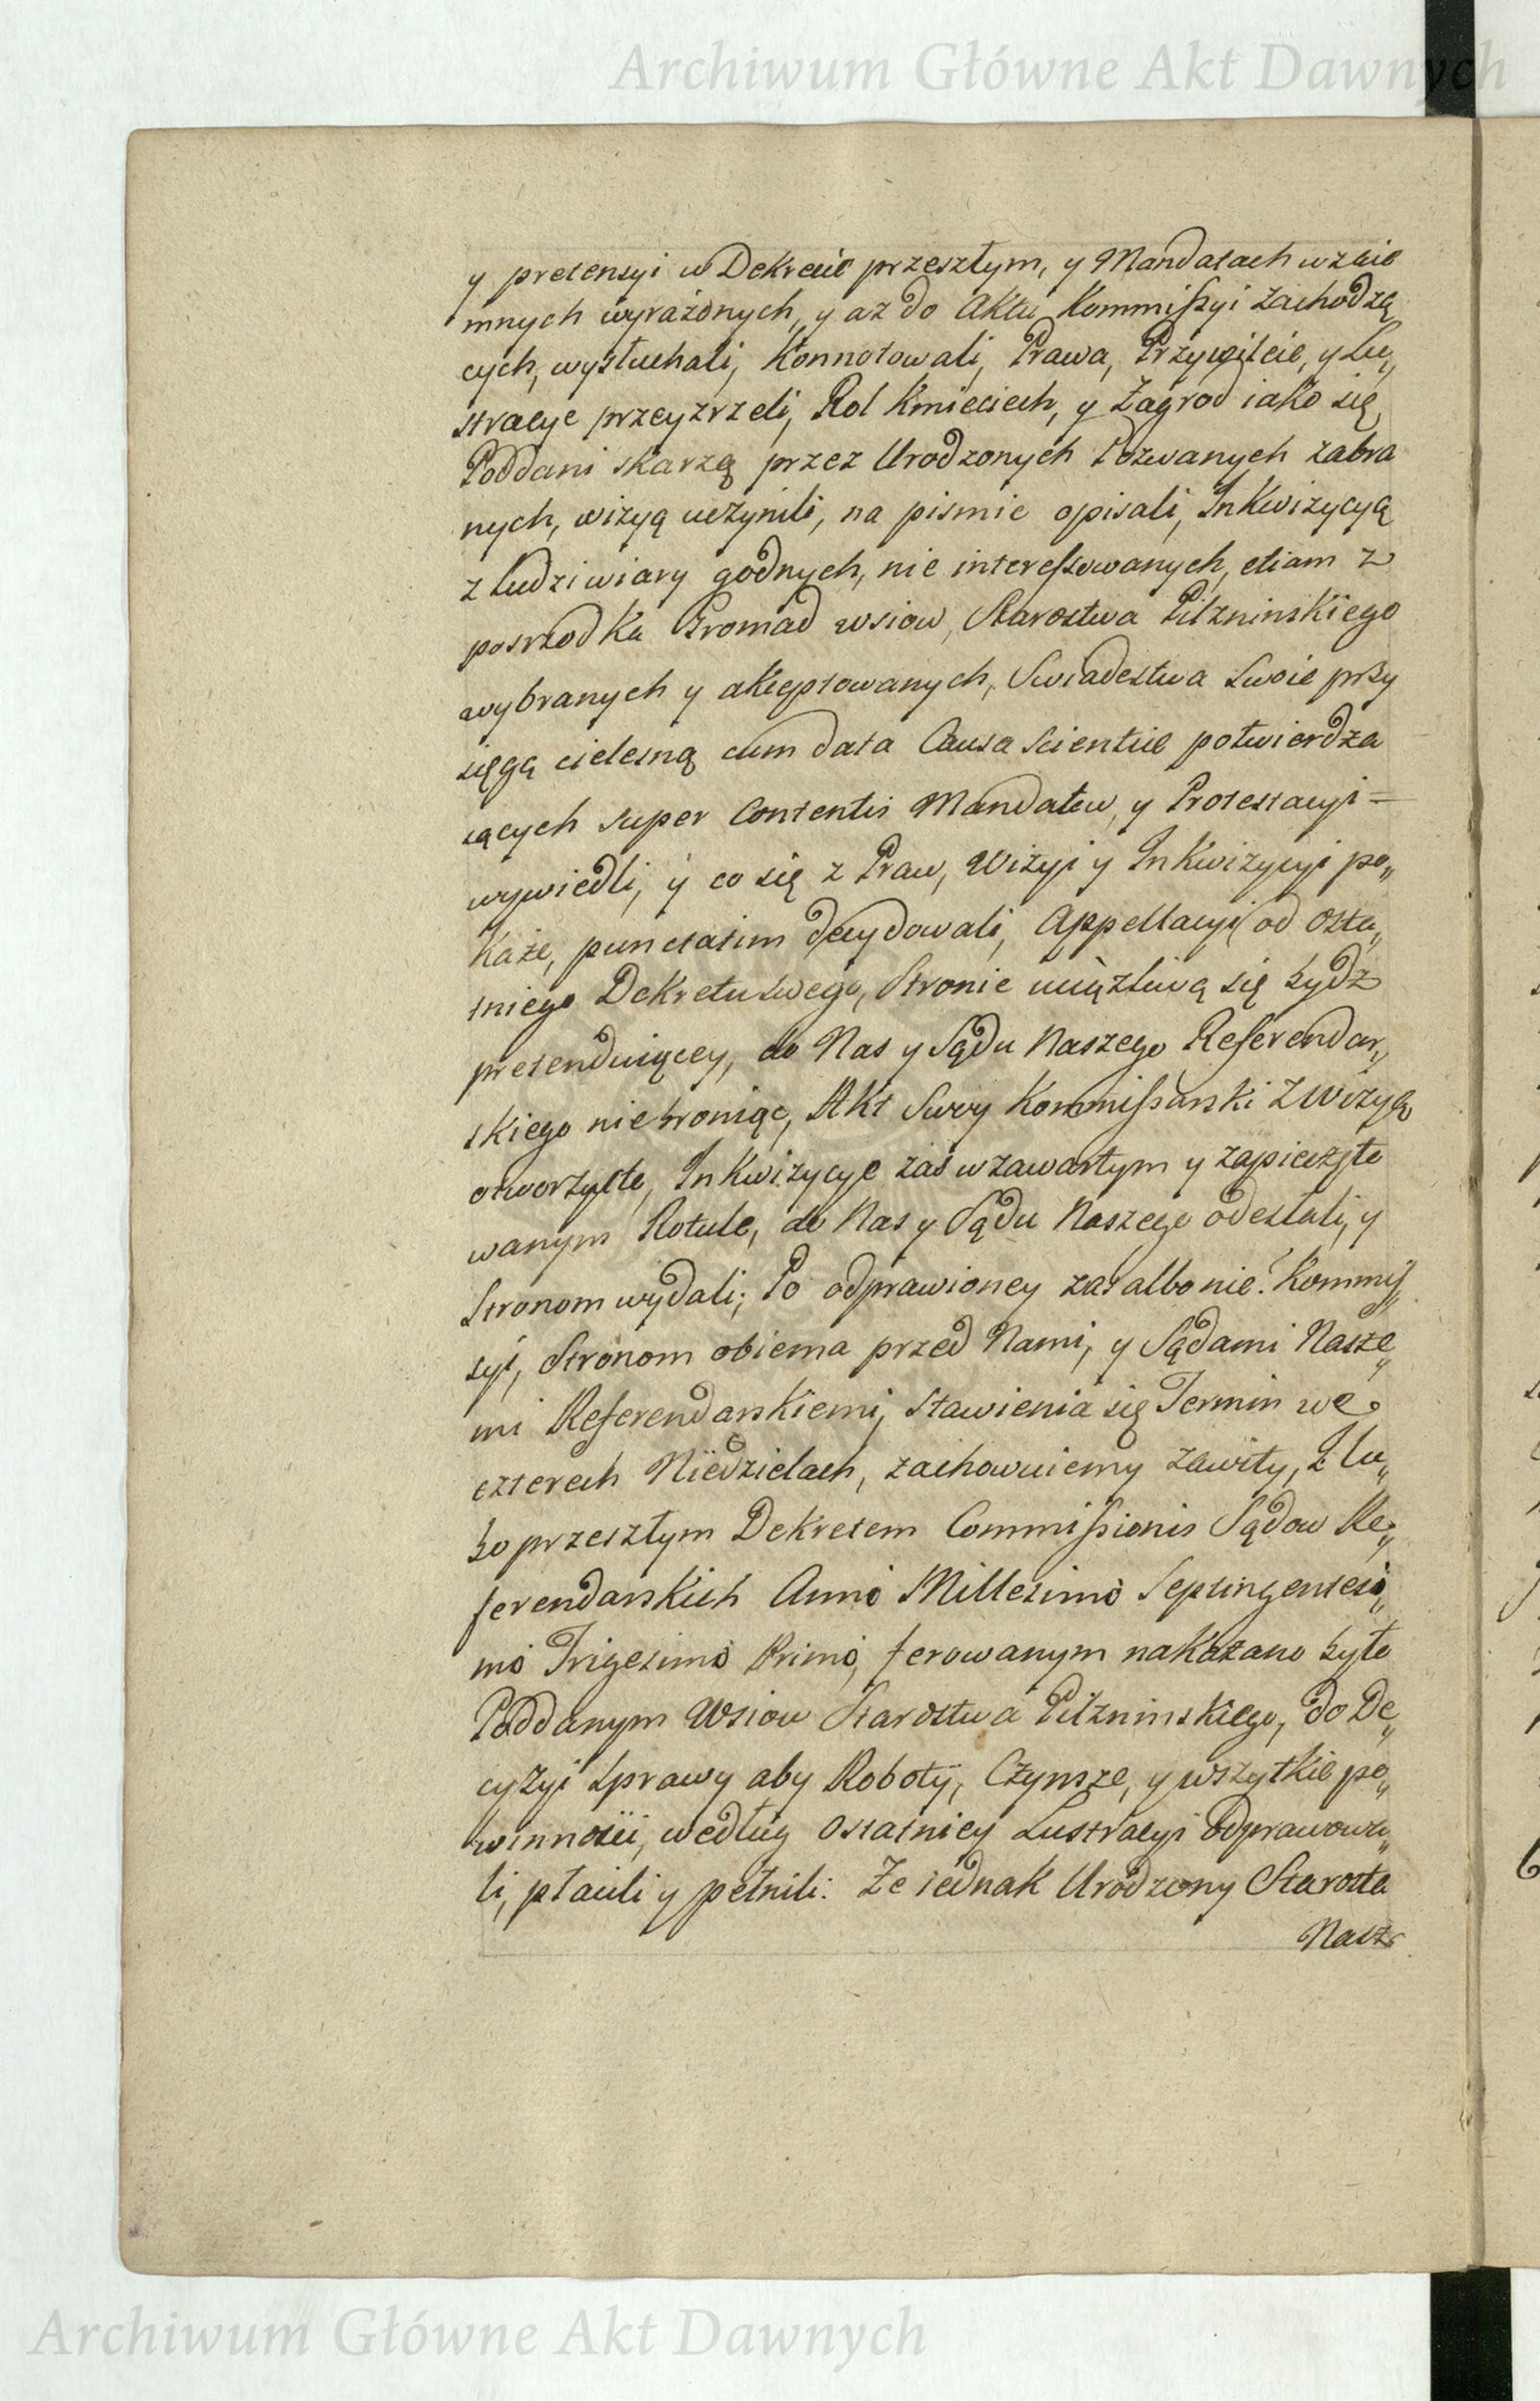 Archiwum Główne Akt Dawnych
y pretensyi w Dekrecie przeszłym, y Mandatach wzaie
mnych wyrażonych, y az do Aktu Kommiſsyi zachodzą
cych, wysłuchali, Konnotowali, Prawa, Przywileie, y Lu„
stracye przeyzrzeli, Rol Kmieciech, y Zagrod iako się
Poddani skarzą przez Urodzonych Pozwanych zabra
nych, wizyą uczynili, na pismie opisali, InKwizycyą
z ludzi wiary godnych, nie intereſsowanych, etiam z
posrzodKu Gromad wsiow, Starostwa Pilzninskiego
wybranych y akceptowanych, Swiadectwa swoie przy
sięgą cielesną cum data Causa Scientiæ potwierdza
iących super Contentis Mandatow, y Protestacyi =
wywiedli, y co się z Praw, Wizyi y InKwizycyi po„
Każe, punctatim decydowali, Appellacyi od Osta„
tniego Dekretu swego, Stronie uciążliwą się bydz
pretenduiącey, do Nas y Sądu Naszego Referendar„
skiego niebroniąc, Akt Swoy Kommiſsarski z Wizyą
otworzyste, InKwizycye zaś w zawartym y zapieczęto
wanym Rotule, do Nas y Sądu Naszego odesłali, y
Stronom wydali; Po odprawioney zas albo nie? Kommiſ„
syi, Stronom obiema przed Nami, y Sądami Nasze„
mi Referendarskiemi, Stawienia się Termin we
czterech Niedzielach, zachowuiemy zawity, Z lu„
bo przeszłym Dekretem Commiſsionis Sądow Re„
ferendarskich Anno Millesimo Septingentesi„
mo Trigesimo Primo, ferowanym nakazano było
Poddanym Wsiow Starostwa Pilzninskiego, do De„
cyzyi sprawy aby Roboty, Czynsze, y wszytkie po„
winnosii, według Ostatniey Lustracyi odprawowa„
li, płacili y pełnili: Ze iednak Urodzony Starosta
Nasz
Archiwum Główne Akt Dawnych